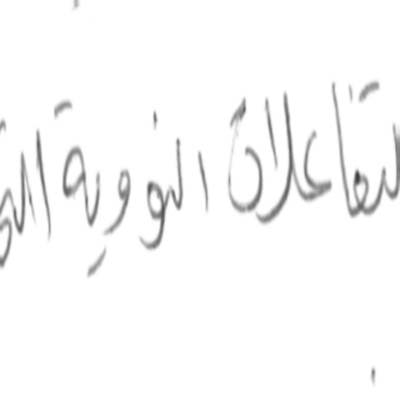 لتفاعلات النووية